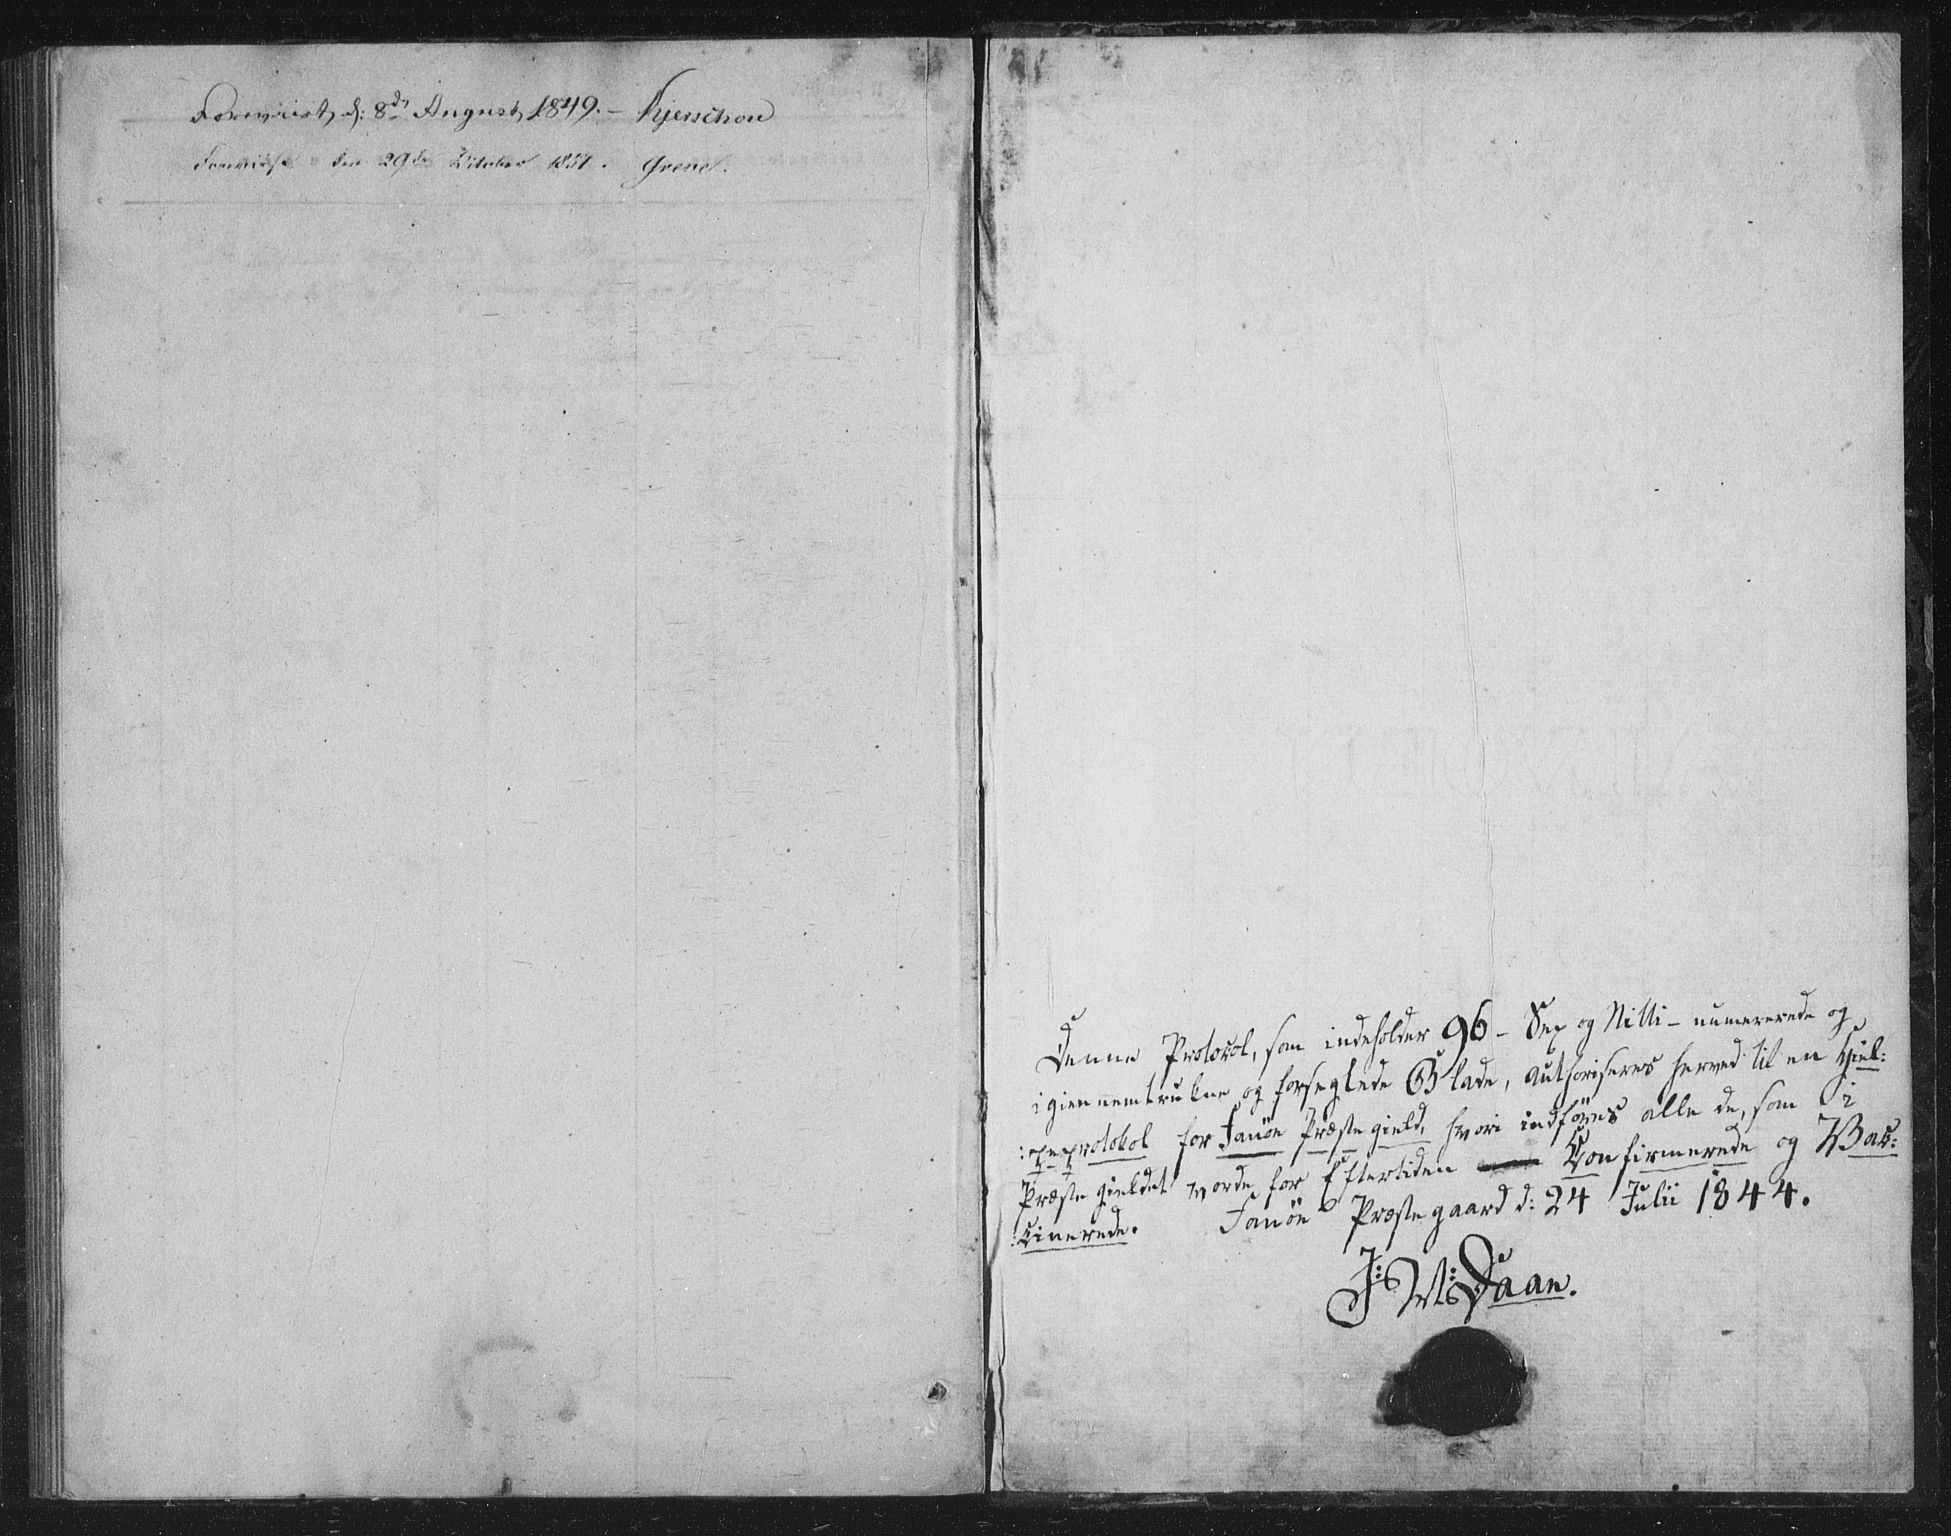 Foreviist d: 8de August 1849. – Kjerschou
Foreviist den 29de October 1851. Grenel.
Denne Protocol, som indeholder 96 – Sex og Nitti – numererede og
igiennemtrukne og forseglede Blade, authoriseres herved til en Hjel:
:peprotokol for Janöe Præstegield, hvori indföres alle de, som i
Præstegieldet vorde for Eftertiden Confirmerede og Vac:
:cinerede. Janöe Præstegaard d: 24 Julii 1844.
J: W: Daae.